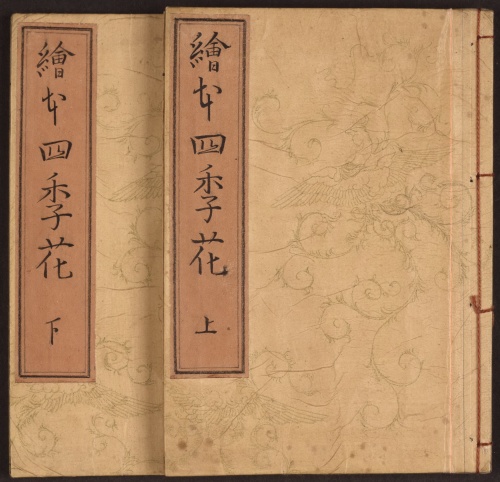 繪本四季花 上
繪本四季花 下